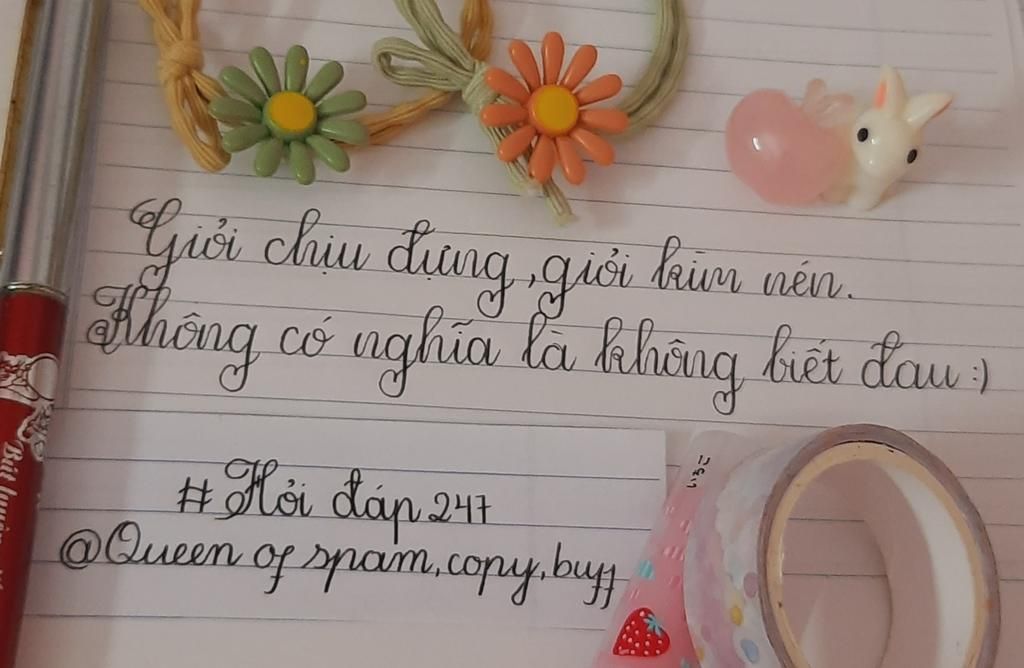 Giỏi chịu đựng, giỏi kìm nén.
Không có nghĩa là không biết đau :)
# Hỏi đáp 247
@Queen of spam, copy, buff